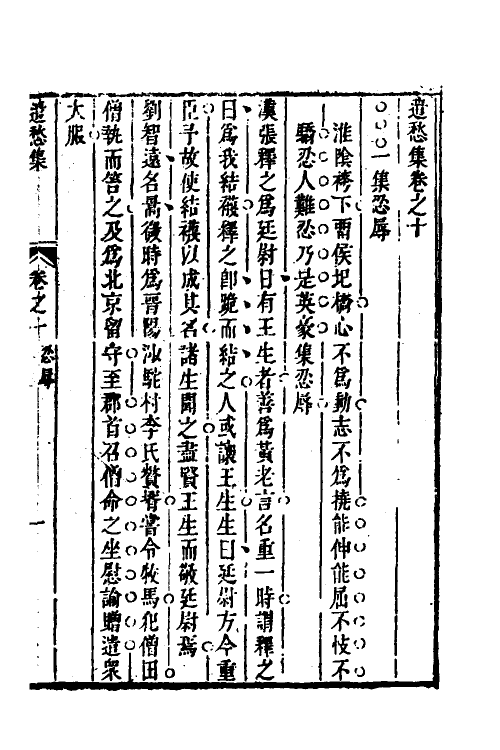 遣愁集卷之十
一集忍辱
淮陰袴下畱侯圯橋心不爲動志不爲撓能伸能屈不忮不
驕忍人難忍乃是英豪集忍辱
漢張釋之爲廷尉日有王生者善爲黃老言名重一時謂釋之
曰爲我結襪釋之卽跪而結之人或讓王生生曰廷尉方今重
臣予故使結襪以成其名諸生聞之盡賢王生而敬廷尉焉
劉智遠名暠微時爲晉陽汕駝村李氏贅壻嘗令牧馬犯僧田
僧執而笞之及爲北京留守至郡首召僧命之坐慰諭贈遣衆
大服
遣愁集
卷之十
忍辱
一